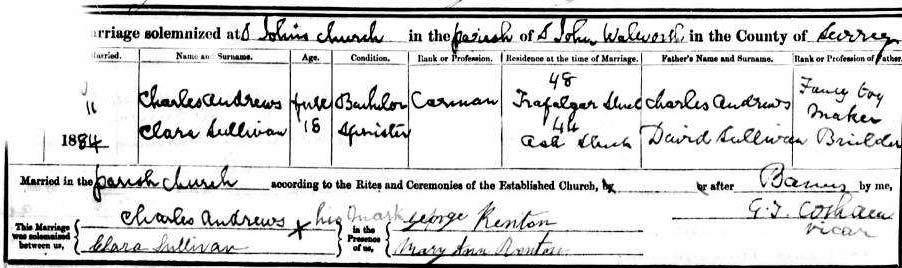 arriage solemnized at St Johns church in the parish of St John Walworth in the County of Surrey
arried. Name and Surname. Age. Condition. Rank or Profession. Residence at the time of Marriage. Father's Name and Surname. Rank or Profession of Father.
11 Charles Andrews full Bachelor Carman 48 Trafalgar Street Charles Andrews Fancy toy Maker
1884 Clara Sullivan 18 Spinster 44 Ash Street David Sullivan Builder
Married in the parish church according to the Rites and Ceremonies of the Established Church, by or after Banns by me,
This Marriage was solemnized between us, Charles Andrews X his Mark in the Presence of us, George Renton G. T. Cotham
Clara Sullivan Mary Ann Renton vicar